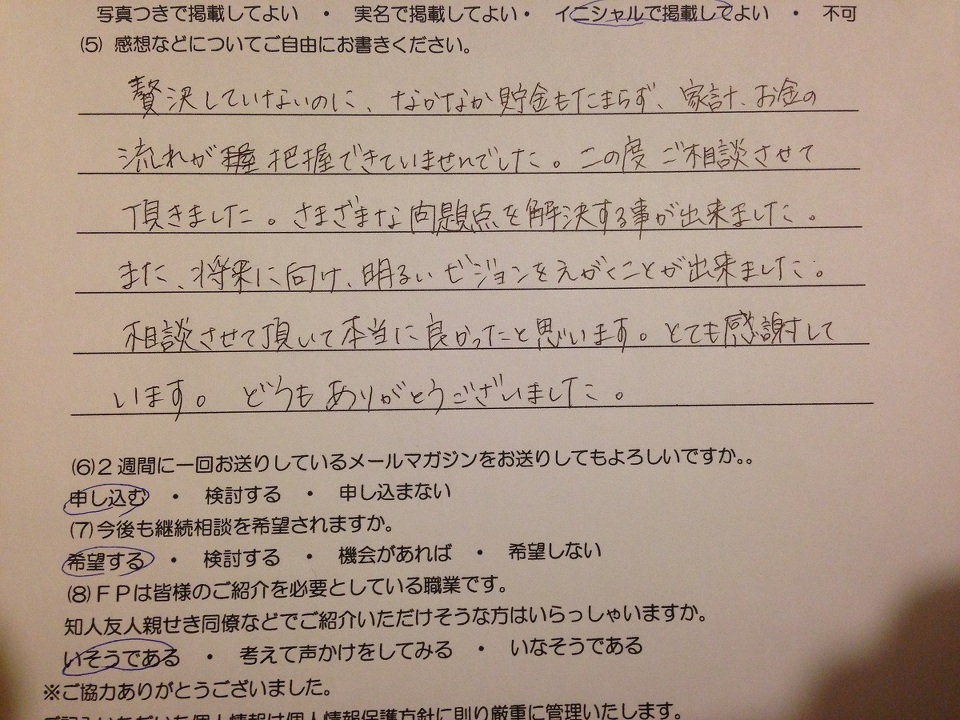 写真つきで掲載してよい ・ 実名で掲載してよい・ イニシャルで掲載してよい ・ 不可
(5) 感想などについてご自由にお書きください。
贅沢していないのに、なかなか貯金もたまらず、家計、お金の
流れが 把握できていませんでした。この度 ご相談させて
頂きました。さまざまな問題点を解決する事が出来ました。
また、将来に向け、明るいビジョンをえがくことが出来ました。
相談させて頂いて本当に良かったと思います。とても感謝して
います。 どうもありがとうございました。
(6)2週間に一回お送りしているメールマガジンをお送りしてもよろしいですか。。
申し込む ・ 検討する ・ 申し込まない
(7)今後も継続相談を希望されますか。
希望する ・ 検討する ・ 機会があれば ・ 希望しない
(8)FPは皆様のご紹介を必要としている職業です。
知人友人親せき同僚などでご紹介いただけそうな方はいらっしゃいますか。
いそうである ・ 考えて声かけをしてみる ・ いなそうである
※ご協力ありがとうございました。
ご記入いただいた個人情報は個人情報保護方針に則り厳重に管理いたします。